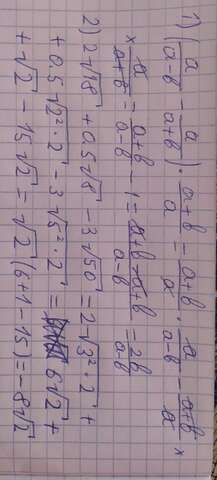 1) (a/(a-b) - a/(a+b)) · (a+b)/a = (a+b)/a · a/(a-b) - (a+b)/a ×
× a/(a+b) = (a+b)/(a-b) - 1 = (a+b-a+b)/(a-b) = 2b/(a-b)
2) 2√18 + 0.5√8 - 3√50 = 2√3²·2 +
+ 0.5√2²·2 - 3√5²·2 = 6√2 +
+ √2 - 15√2 = √2(6+1-15) = -8√2